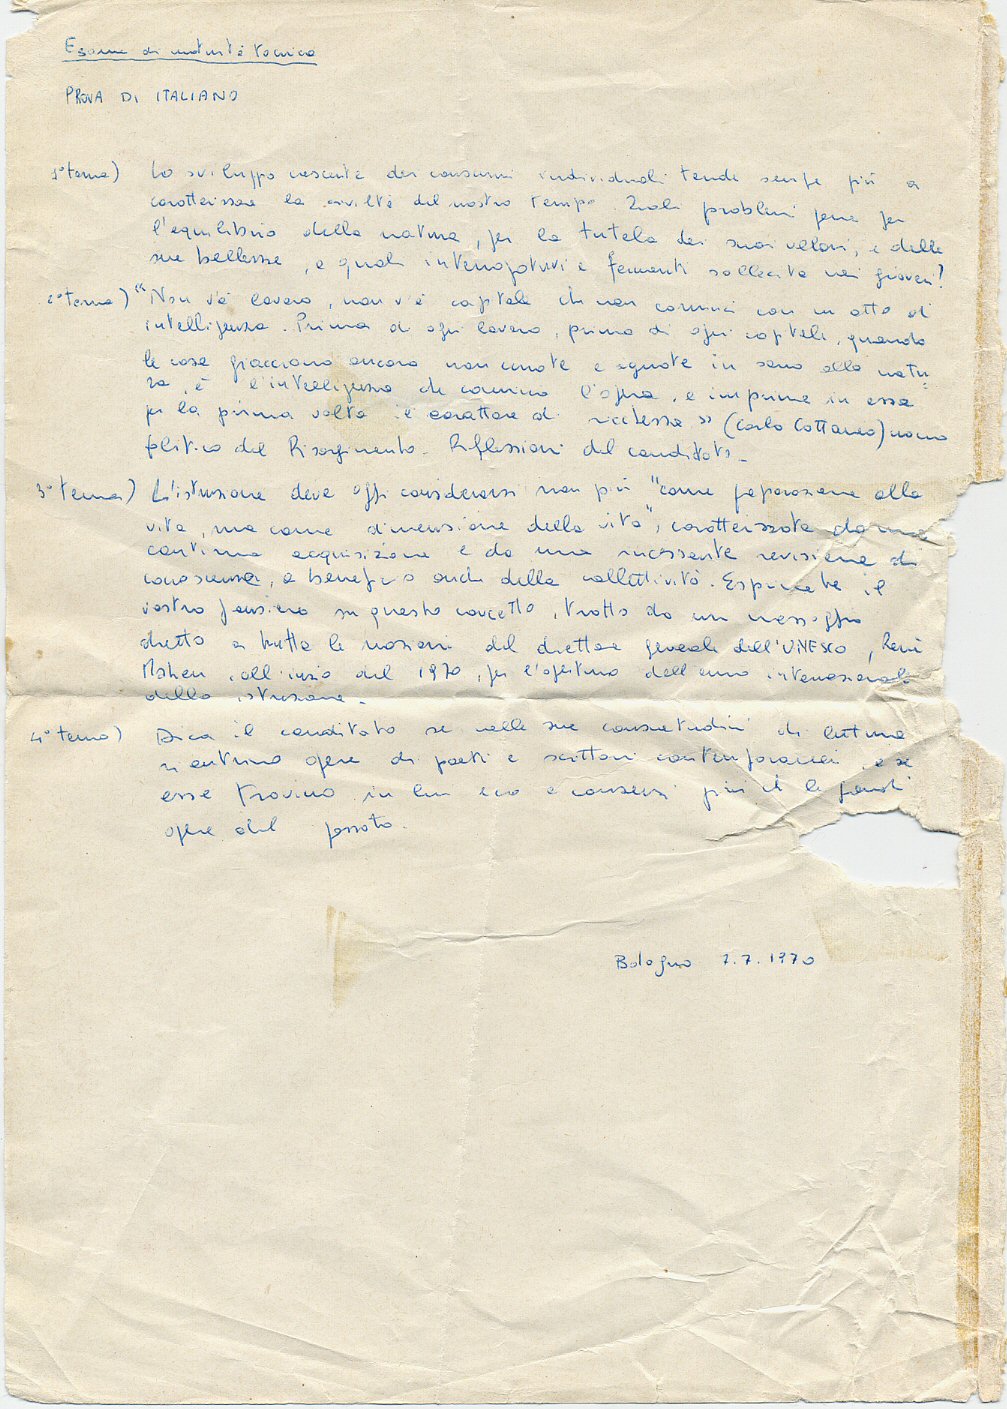 Esame di maturità tecnica
PROVA DI ITALIANO
1° tema) Lo sviluppo crescente dei consumi individuali tende sempre più a
caratterizzare la civiltà del nostro tempo. Quali problemi pone per
l'equilibrio della natura, per la tutela dei suoi valori, e delle
sue bellezze, e quali interrogativi e fermenti sollecita nei giovani?
2° tema) "Non v'è lavoro, non v'è capitale che non cominci con un atto di
intelligenza. Prima di ogni lavoro, prima di ogni capitale, quando
le cose giacciono ancora non curate e ignote in seno alla natu-
ra, è l'intelligenza che comincia l'opera, e imprime in esse
per la prima volta il carattere di ricchezza" (Carlo Cattaneo) uomo
politico del Risorgimento. Riflessioni del candidato.
3° tema) L'istruzione deve oggi considerarsi non più "come preparazione alla
vita, ma come dimensione della vita", caratterizzata da una
continua acquisizione e da una incessante revisione di
conoscenza, a beneficio anche della collettività. Esprimete il
vostro pensiero su questo concetto, tratto da un messaggio
diretto a tutte le nazioni del direttore generale dell'UNESCO, René
Maheu, all'inizio del 1970, per l'apertura dell'anno internazionale
della istruzione.
4° tema) Dica il candidato se nelle sue consuetudini di lettura
rientrino opere di poeti e scrittori contemporanei, e se
esse trovino in lui eco e consensi più che le grandi
opere del passato.
Bologna 2.7.1970